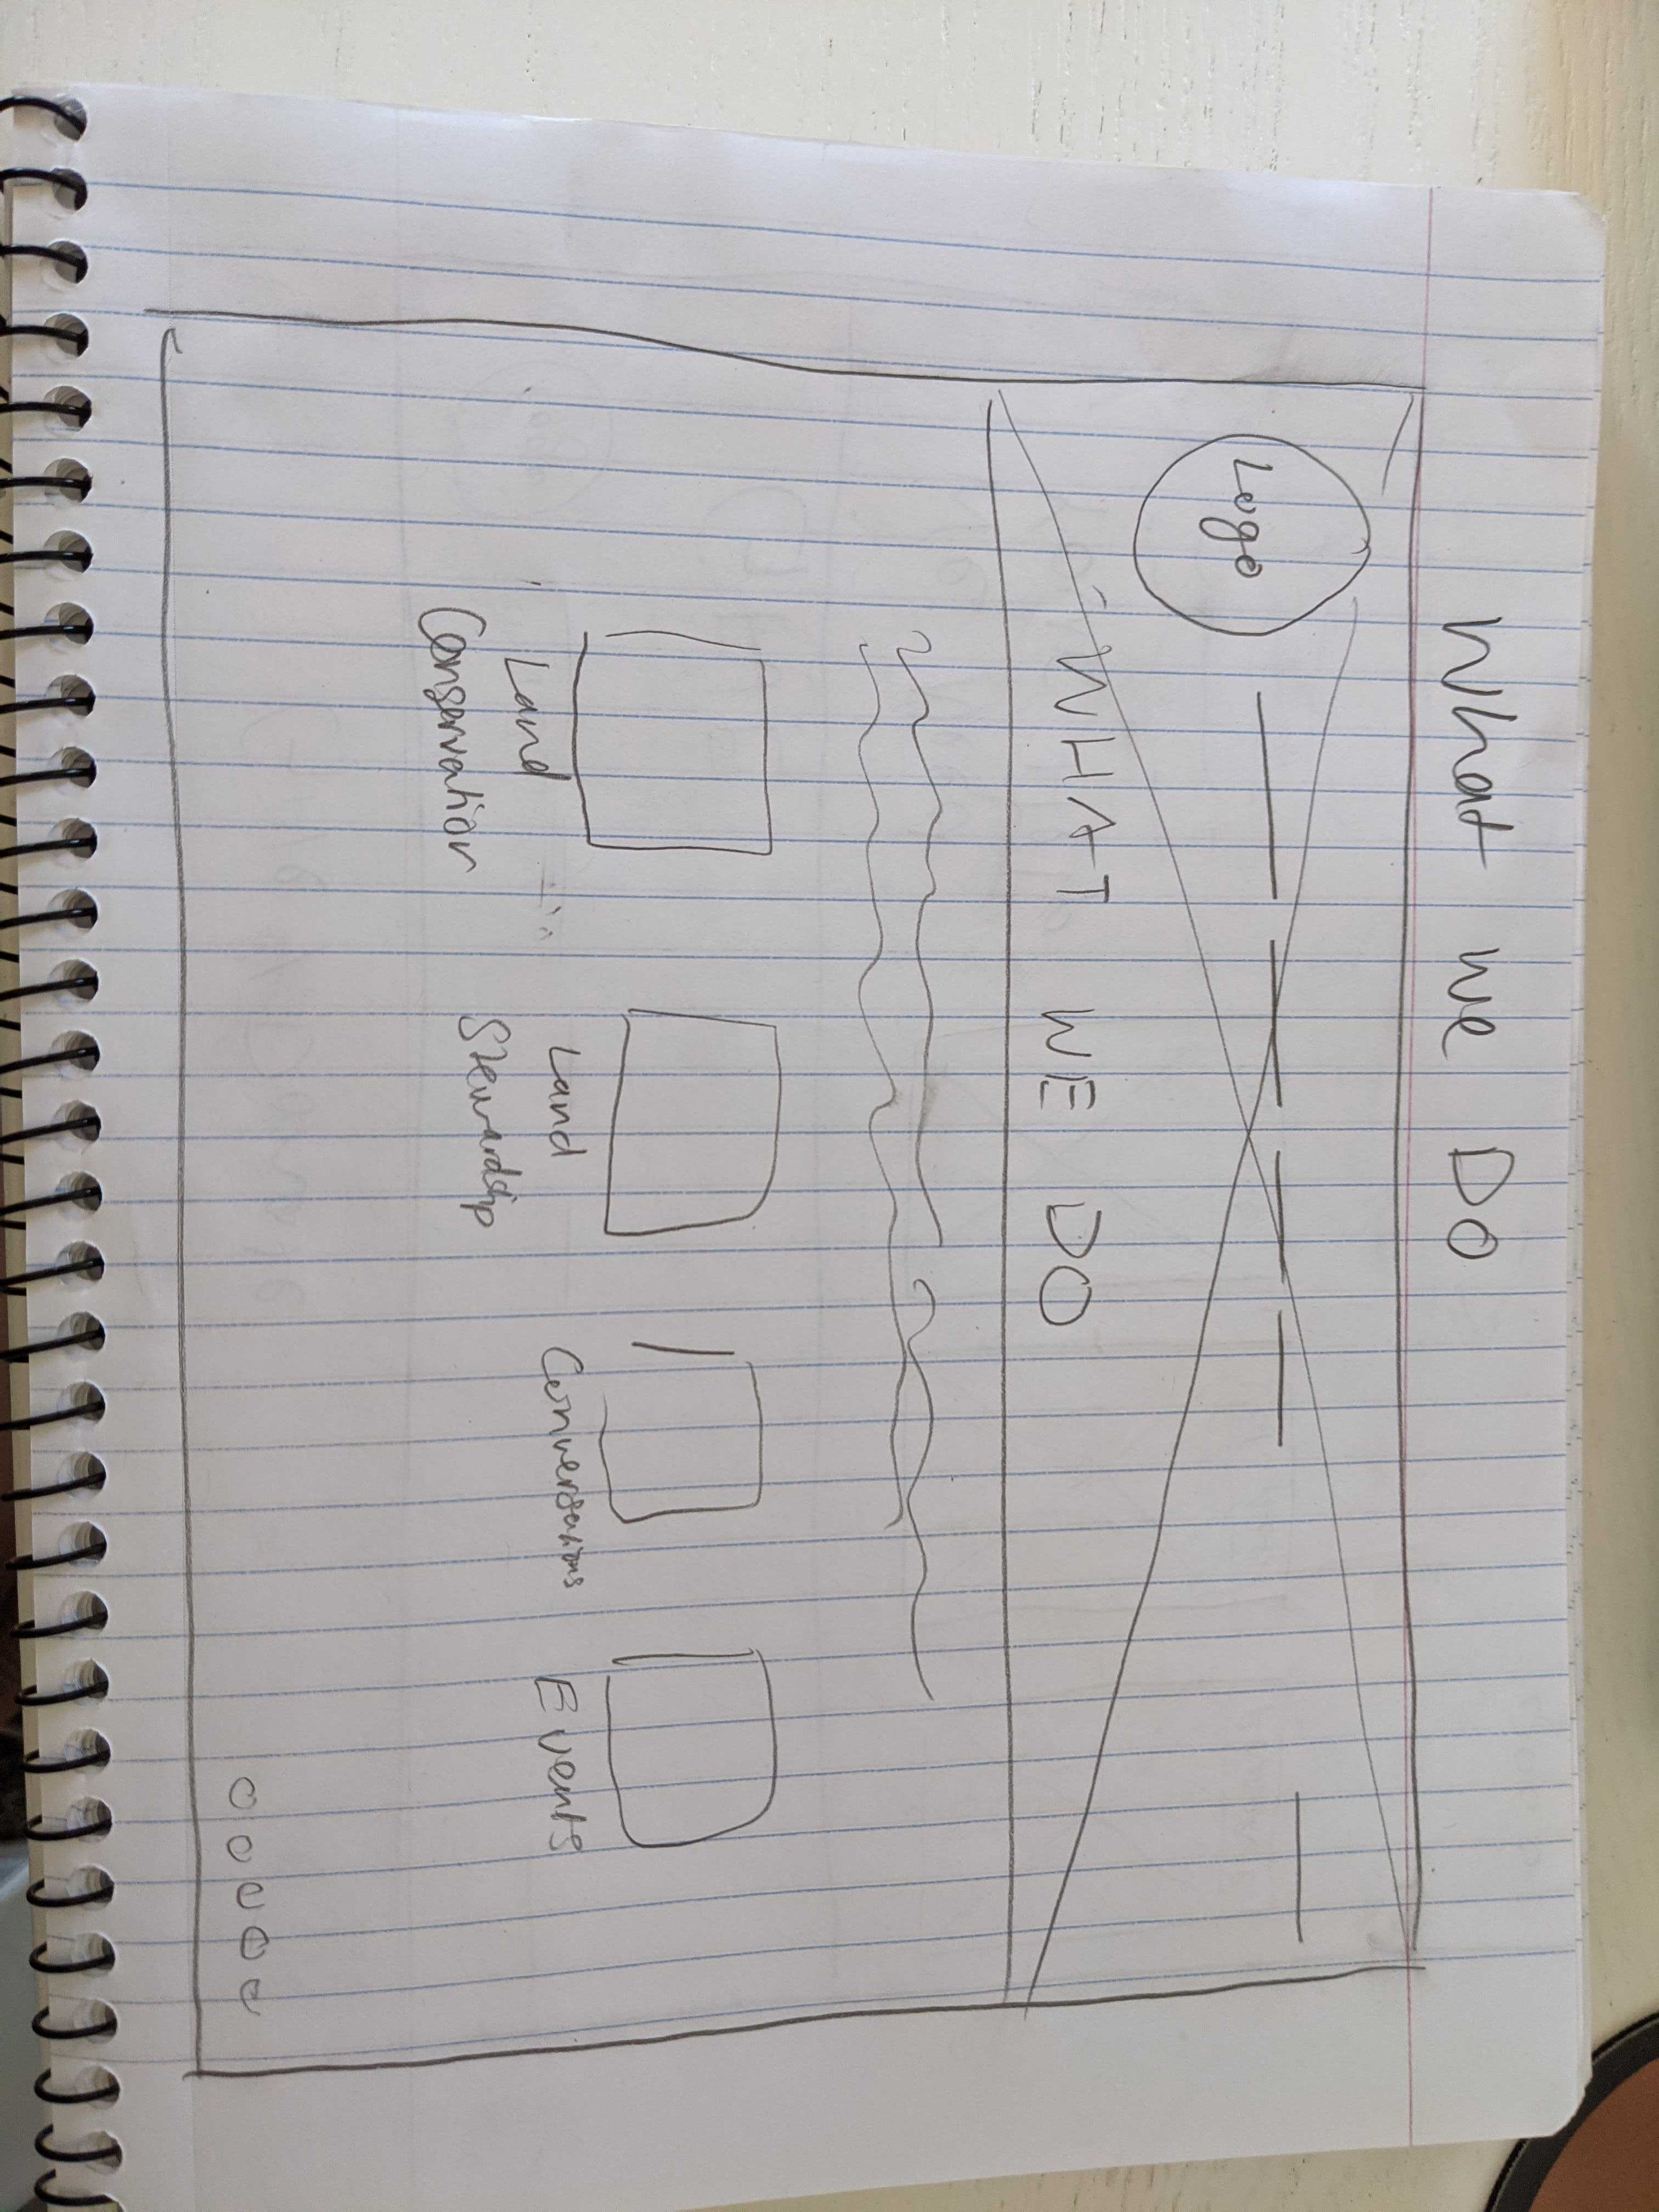 What we Do
Logo
WHAT WE DO
Land
Conservation
Land
Stewardship
Conversations
Events